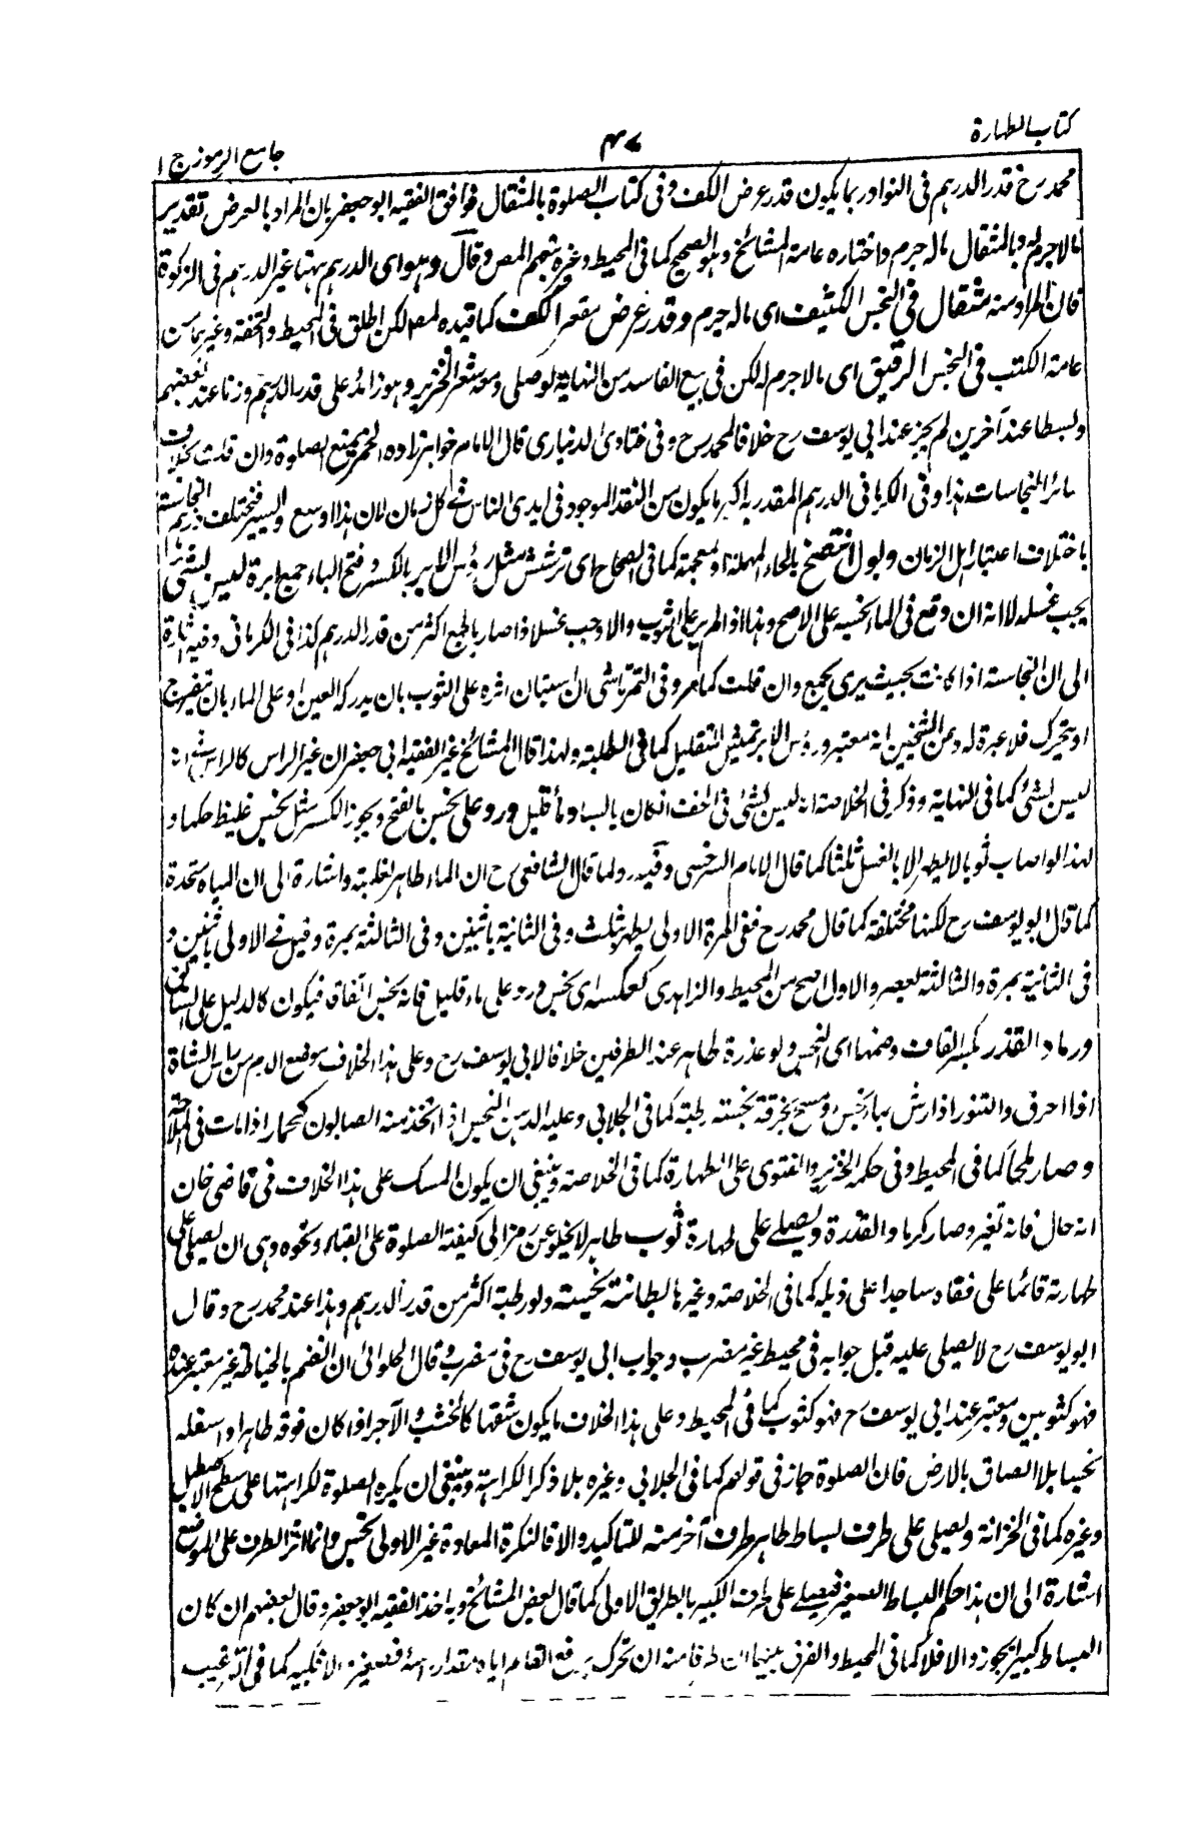 كتاب الطهارة
٤٧
جامع الرموز ج ١
محمد رح قدر الدرهم فى النوادر بما يكون قدر عرض الكف وفى كتاب الصلوة بالمثقال فوافق الفقيه ابو جعفر بان المراد بالعرض تقدير
مالا جرم له وبالمثقال ماله جرم واختاره عامة المشائخ وهو الصحيح كما فى المحيط وغيره فتبعهم المصـ وقال وهو اى الدرهم ههنا غير الدرهم فى الزكوة
فان المراد منه مثقال فى النجس الكثيف اى ماله جرم وقدر عرض مقعر الكف كما قيده المصـ لكن اطلق فى المحيط والتحفة وغيرهما من
عامة الكتب فى النجس الرقيق اى مالا جرم له لكن فى بيع الفاسد من النهاية لو صلى ومعه شعر الخنزير وهو زائد على قدر الدرهم وزنا عند بعضهم
وبسطا عند آخرين لم يجز عند ابى يوسف رح خلافا لمحمد رح وفى فتاوى الدينارى قال الامام خواهر زاده الخمر يمنع الصلوة وان قلت بخلاف
سائر النجاسات هذا وفى الكرمانى الدرهم المقدر به اكبر ما يكون من النقد الموجود فى ايدى الناس فى كل زمان لان هذا اوسع وايسر فيختلف درهم النجاسة
باختلاف اعتبار اهل الزمان وبول انتضح بالحاء المهملة او المعجمة كما فى الصحاح اى ترشش مثل رؤس الابر بالكسر وفتح الباء جمع ابرة ليس بشئ
يجب غسله الا انه ان وقع فى الماء نجسه على الاصح وهذا اذا لم ير على الثوب والا وجب غسله اذا صار بالجمع اكثر من قدر الدرهم كذا فى الكرمانى وفيه اشارة
الى ان النجاسة اذا كانت بحيث يرى يجمع وان قلت كما مر وفى التمرتاشى ان استبان اثره على الثوب بان يدركه العين او على الماء بان ينفرج
او يتحرك فلا عبرة له وعن الشيخين انه معتبر ورؤس الابر تمثيل للتقليل كما فى الطلبة ولهذا قال المشائخ غير الفقيه ابى جعفر ان غير الراس كالراس
ليس بشئ كما فى النهاية وذكر فى الخلاصة انه ليس بشئ فى الخف ان كان باليا وماء قليل ورد على نجس بالفتح ويجوز الكسر مثل نجس غليظ حكما و
لهذا لو اصاب ثوبا لا يطهر الا بالغسل ثلثا كما قال الامام السرخسى وفيه رد لما قال الشافعى رح ان الماء طاهر لغلبته واشارة الى ان المياه متحدة
كما قال ابو يوسف رح لكنها مختلفة كما قال محمد رح ففى المرة الاولى يطهر بثلث وفى الثانية باثنين وفى الثالثة بمرة وقيل فى الاولى باثنين و
فى الثانية بمرة والثالثة بعصر والاول اصح من المحيط والزاهدى كعكسه اى نجس ورد على ماء قليل فانه نجس اتفاقا فيكون كالدليل على الشافعى
ورماد القذر بكسر القاف وضمها اى النجس ولو عذرة طاهر عند الطرفين خلافا لابى يوسف رح وعلى هذا الخلاف موضع الدم من راس الشاة
اذا احرق والتنور اذا رش بماء نجس او مسح بخرقة نجسة رطبة كما فى الجلابى وعليه الدهن النجس اذا اتخذ منه الصابون كحمار اذا مات فى الملاحة
وصار ملحا كما فى المحيط وفى حكمه الخنزير والفتوى على الطهارة كما فى الخلاصة وينبغى ان يكون المسك على هذا الخلاف ففى قاضى خان
انه حلال فانه تغير وصار كرماد القذرة ويصلى على طهارة ثوب طاهر لا يخلو عن رمز الى كيفية الصلوة على القباء ونحوه وهى ان يصلى على
طهارته قائما على قفاه ساجدا على ذيله كما فى الخلاصة وغيرها بطانته نجسة ولو رطبة اكثر من قدر الدرهم وهذا عند محمد رح وقال
ابو يوسف رح لا يصلى عليه قيل جوابه فى محيط غير مضرب وجواب ابى يوسف رح فى مضرب وقال الحلوانى ان الضم بالخياطة غير معتبر عنده
فهو كثوبين ومعتبر عند ابى يوسف رح فهو كثوب كما فى المحيط وعلى هذا الخلاف ما يكون شقها كالخشب والآجر اذا كان فوقه طاهرا واسفله
نجسا بلا الصاق بالارض فان الصلوة جاز فى قولهم كما فى الجلابى وغيره بلا ذكر الكراهة وينبغى ان يكره الصلوة لكراهتها على سطح الاصطبل
وغيره كما فى الخزانة ويصلى على طرف بساط طاهر طرف آخر منه للتاكيد والا فالنكرة المعادة غير الاولى نجس وانما اثر الطرف على الموضع
اشارة الى ان هذا حكم البساط الصغير فيصلى على طرف الكبير بالطريق الاولى كما قال بعض المشائخ وبه اخذ الفقيه ابو جعفر وقال بعضهم ان كان
البساط كبيرا يجوز والا فلا كما فى المحيط والفرق بينهما ان طرفا منه ان تحرك برفع القائم اياه مقدار فصغير والا فكبير كما فى الترغيب